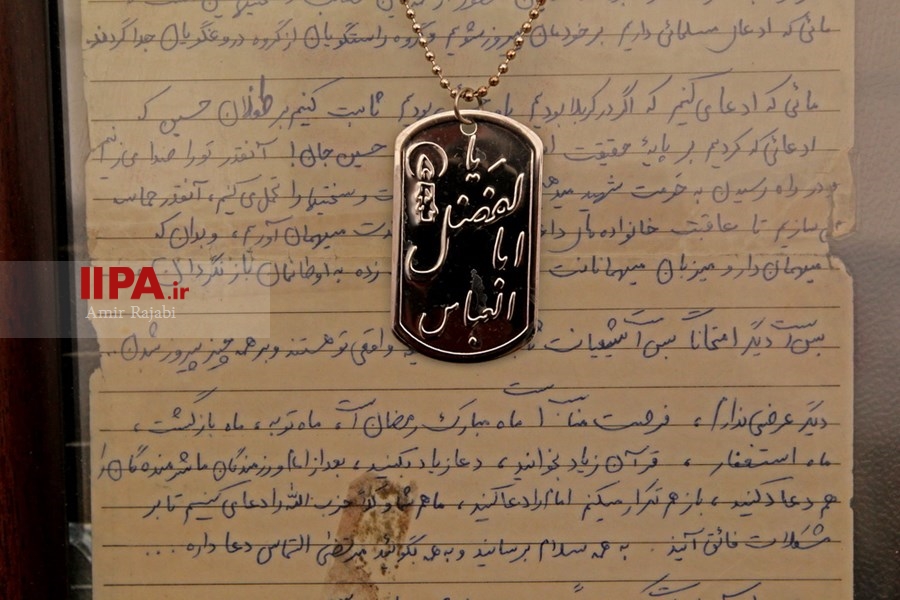 مائی که ادعای مسلمانی داریم بر خودمان پیروز شویم و گروه راستگویان از گروه دروغگویان جدا گردند.
مائی که ادعا می کنیم که اگر در کربلا بودیم ثابت کنیم بر طفلان حسین که
ادعائی که کردیم بر پایهٔ حقیقت حسین جان! آنقدر تو را صدا می زنیم
و در راه رسیدن به خدمت و سختیها را تحمل می کنیم، آنقدر حماسه
می سازیم تا عاقبت خانواده میهمان آوریم، و بدان که
میهمان دارد میزبان میهمانانت زده به اوطانمان باز نگردان
بس است دیگر امتحانا بس است شیعیانت واقعی تو هستند و بر همه چیز پیروز شدن...
دیگر عرضی ندارم، فرصت مناسب است ماه مبارک رمضان است، ماه توبه، ماه بازگشت،
ماه استغفار، قرآن زیاد بخوانید، دعا زیاد بکنید، بعد از امام و رزمندگان ما شرمنده گان را
هم دعا بکنید، باز هم تکرار میکنم امام را دعا کنید، ما هم شما و حزب الله را دعا می کنیم تا بر
مشکلات فائق آئید. به همه سلام برسانید و به همه بگوئید مرتضی التماس دعا داره...
یا
ابالفضل
العباس
IIPA.ir
Amir Rajabi